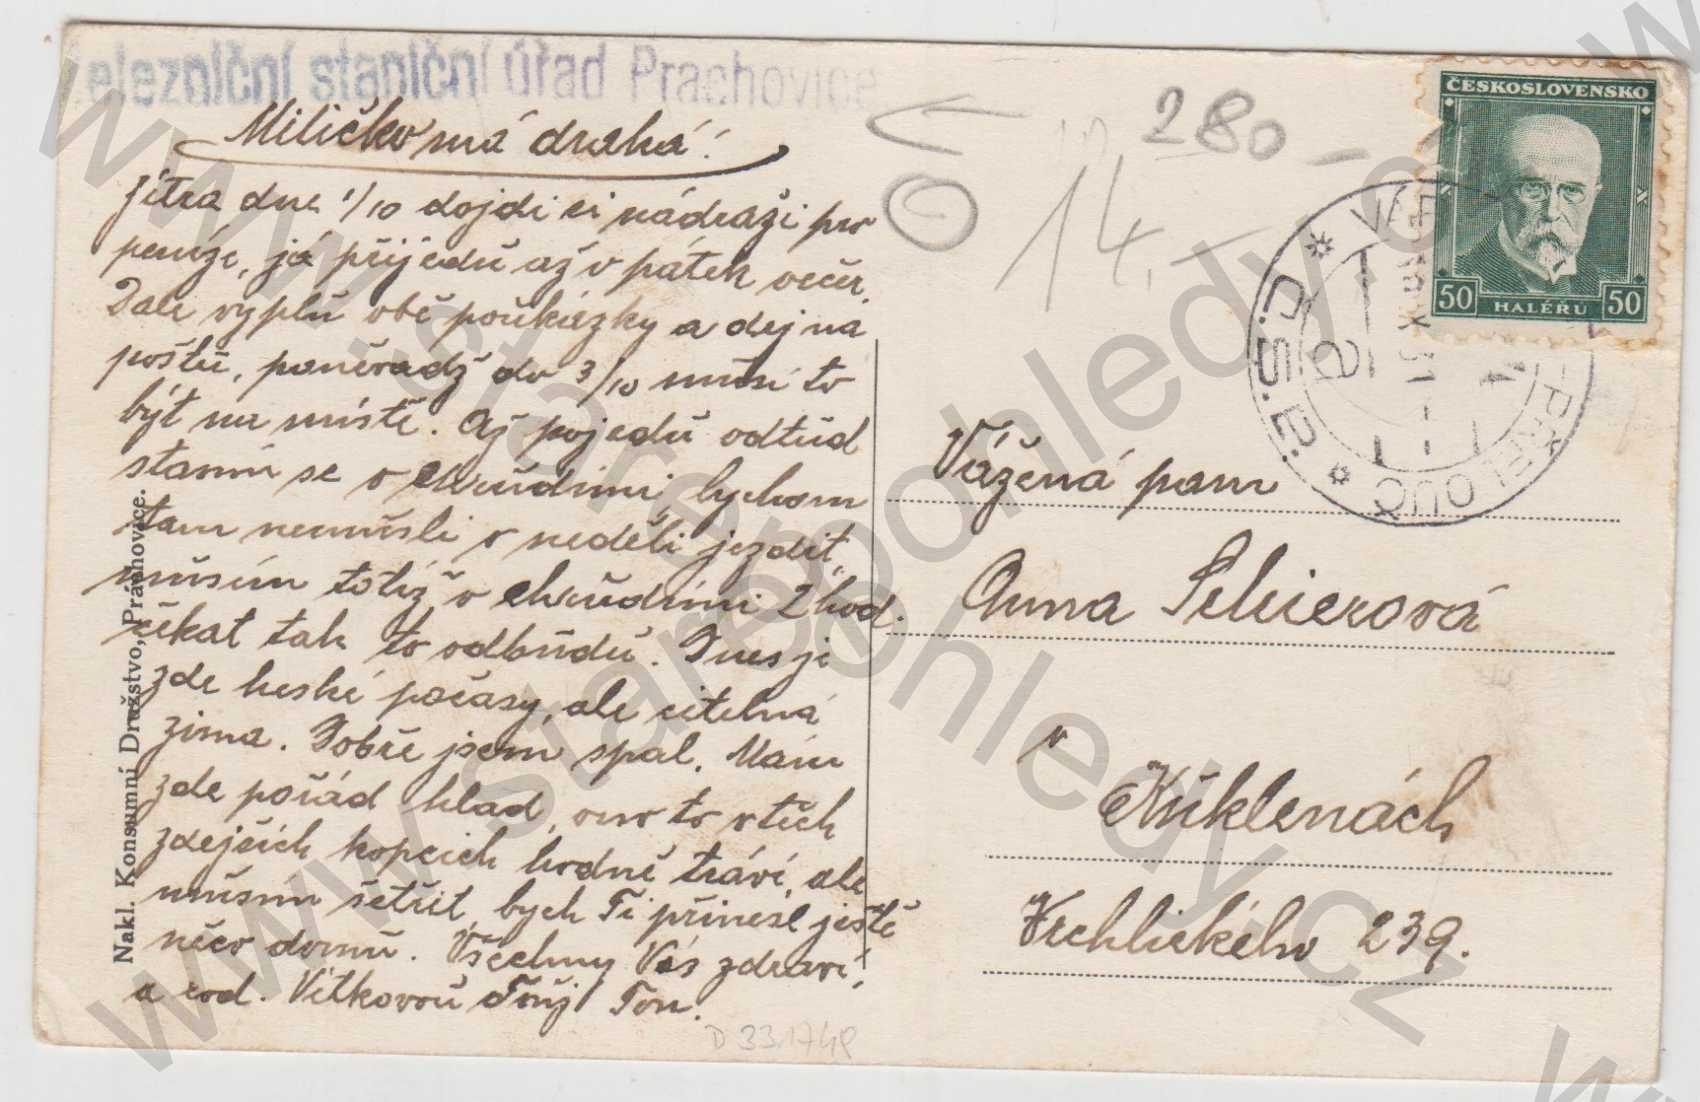 elezniční staniční úřad Prachovice
Miličko má drahá!
Zítra dne 1/10 dojdi si nádraží pro
peníze, já přijedu až v pátek večer.
Dále vyplň obě poukázky a dej na
poštu, poněvadž do 3/10 musí to
být na místě. Až pojedu odtud
stavím se v Chrudimi, bychom
tam nemusili v neděli jezdit,
musím totiž v Chrudimi 2 hod.
čekat tak to odbudu. Dnes je
zde heské počasy, ale citelná
zima. Dobře jsem spal. Mám
zde pořád hlad, ono to v těch
zdejších kopcích hodně tráví, ale
musím šetřit, bych Ti přinesl ještě
něco domů. Všechny Vás zdraví,
a rod. Vítkovou Tvůj Ton.
Nakl. Konsumní Družstvo, Práchovice.
280
14.-
ČESKOSLOVENSKO
50 HALÉRU 50
Č.S.P.
PŘELOUČ
Vážená paní
Anna
v
Kuklenách
Vrchlického 239.
D 331748
www.starepohledy.cz
www.starepohledy.cz